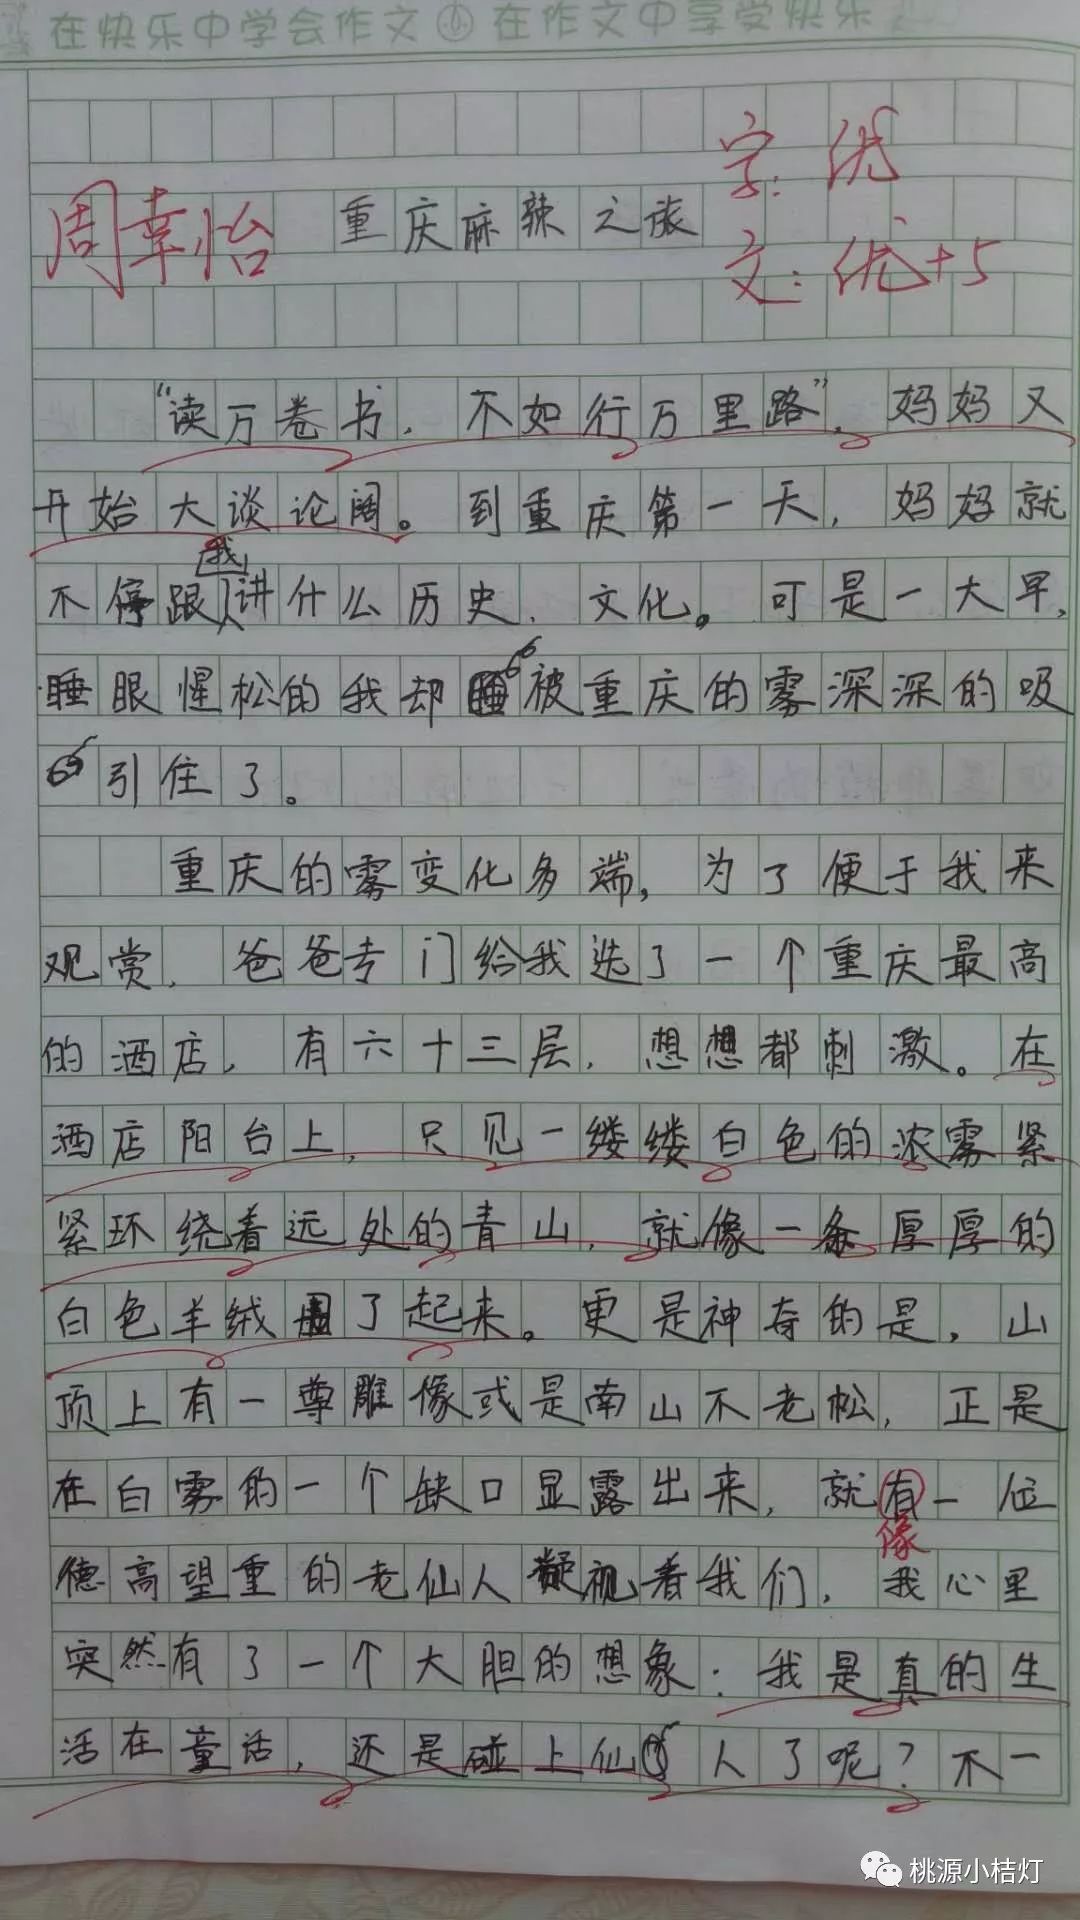 在快乐中学会作文 在作文中享受快乐
字:优
周幸怡 重庆麻辣之旅
文:优+5
“读万卷书,不如行万里路”,妈妈又
开始大谈论阔。到重庆第一天,妈妈就
我
不停跟讲什么历史、文化。可是一大早,
睡眼惺松的我却被重庆的雾深深的吸
引住了。
重庆的雾变化多端,为了便于我来
观赏,爸爸专门给我选了一个重庆最高
的酒店,有六十三层,想想都刺激。在
酒店阳台上,只见一缕缕白色的浓雾紧
紧环绕着远处的青山,就像一条厚厚的
白色羊绒围了起来。更是神夺的是,山
顶上有一尊雕像或是南山不老松,正是
在白雾的一个缺口显露出来,就有一位
像
德高望重的老仙人凝视着我们,我心里
突然有了一个大胆的想象:我是真的生
活在童话,还是碰上仙人了呢?不一
桃源小桔灯